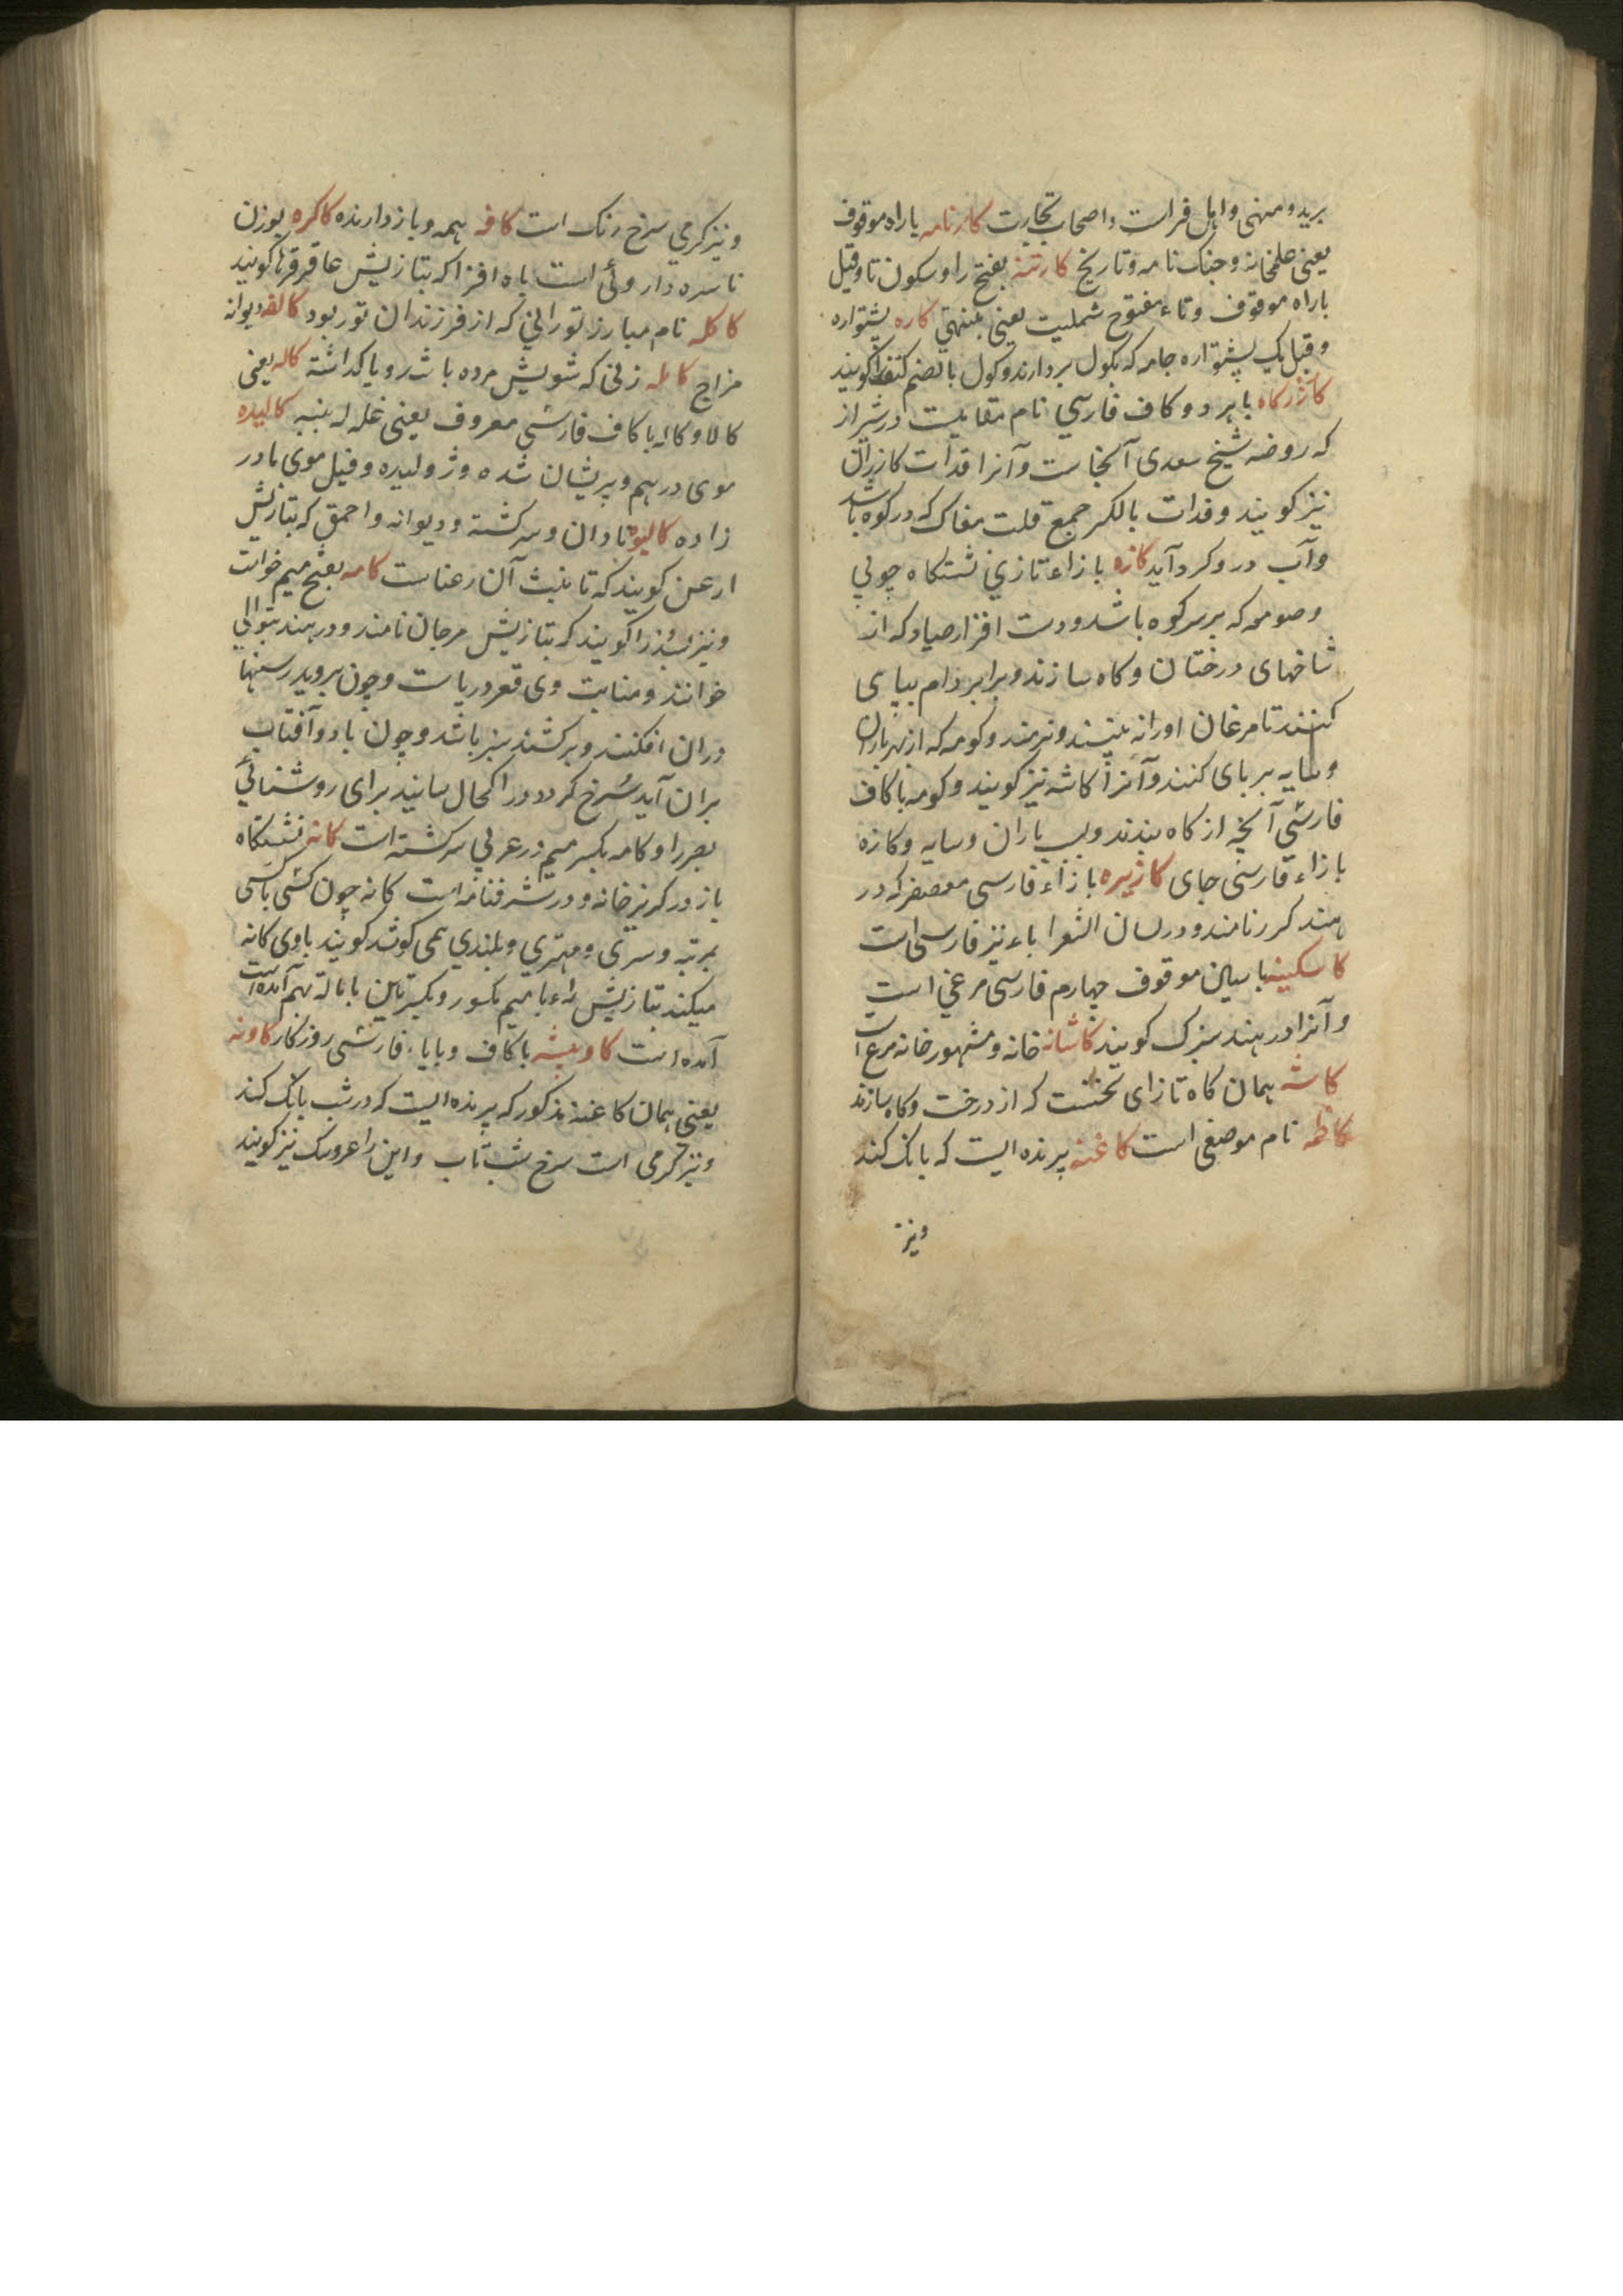 برید و منهی و اهل فراست و اصحاب تجارت کارنامه با راء موقوف
یعنی و جنک نامه و تاریخ کارتنه بفتح را و سکون تا و قیل
با راء موقوف و تاء مفتوح شملیت یعنی کاره پشتواره
و قیل یک پشتواره جامه که بکول بردارند و کول بالضم کتف را کویند
کازرکاه با هر دو کاف فارسی نام مقامیست در شیراز
که روضه شیخ سعدی آنجاست و آنرا قدات کازران
نیز کویند و قدات بالکسر جمع قلت مغاک که در کوه باشد
و آب درو کرد آید کازه با زاء تازی نشستکاه چوبی
و صومعه که بر سر کوه باشد و دست افزار صیاد که از
شاخهای درختان و کاه سازند و برابر دام بپای
کنند تا مرغان او را نه بینند و نرمند و کومه که از بهر باران
و سایه بر پای کنند و آنرا کاشه نیز کویند و کومه با کاف
فارسی آنچه از کاه بندند و باران و سایه و کازه
با زاء فارسی جای کازیره با زاء فارسی معصفر که در
هند کرر نامند و در لسان الشعرا باء نیز فارسی است
کاسکینه با سین موقوف چهارم فارسی مرغی است
و آنرا در هند سبزک کویند کاشانه خانه و مشهور خانه مرغ است
کاشه همان کاه تازای نخست که از درخت و کاه سازند
کاظمه نام موضعی است کاغنه پرنده ایست که بانک کند
ونیز
و نیز کرمی سرخ رنک است کافه همه و باز دارنده کاکره بوزن
ناسره داروئی است باه افزا که بتازیش عاقرقرحا کویند
کاکله نام مبارز تورانی که از فرزندان تور بود کالفه دیوانه
مزاج کالمه زنی که شویش مرده باشد و یا کذاشته کاله یعنی
کالا و کاله با کاف فارسی معروف یعنی غله پنبه کالیده
موی درهم و پریشان شده و ژولیده و قیل موی مادر
زاده کالیوه نادان و سرکشته و دیوانه و احمق که بتازیش
ارعن کویند که تانیث آن رعناست کامه بفتح میم خواست
و نیز بُسَّذ را کویند که بتازیش مرجان نامند و در هند
خوانند و منابت وی قعر دریاست و چون بروید رسنها
دران افکنند و برکشند سبز باشد و چون باد و آفتاب
بران آید سُرخ کردد در اکحال سایند برای روشنائی
بصر را و کامه بکسر میم در عربی سرکشته است کانه نشستکاه
باز در کریز خانه و در شرفنامه است کانه چون کسی با کسی
بمرتبه و سری و مهتری و بلندی همی کوشد کویند با وی کانه
میکند بتازیش با میم مکسور و
آمده است کاویشه با کاف و با یاء فارسی روزکار کاونه
یعنی همان کاغنه مذکور که پرنده ایست که در شب بانک کند
و نیز کرمی است سرخ شب تاب و این را عروسک نیز کویند